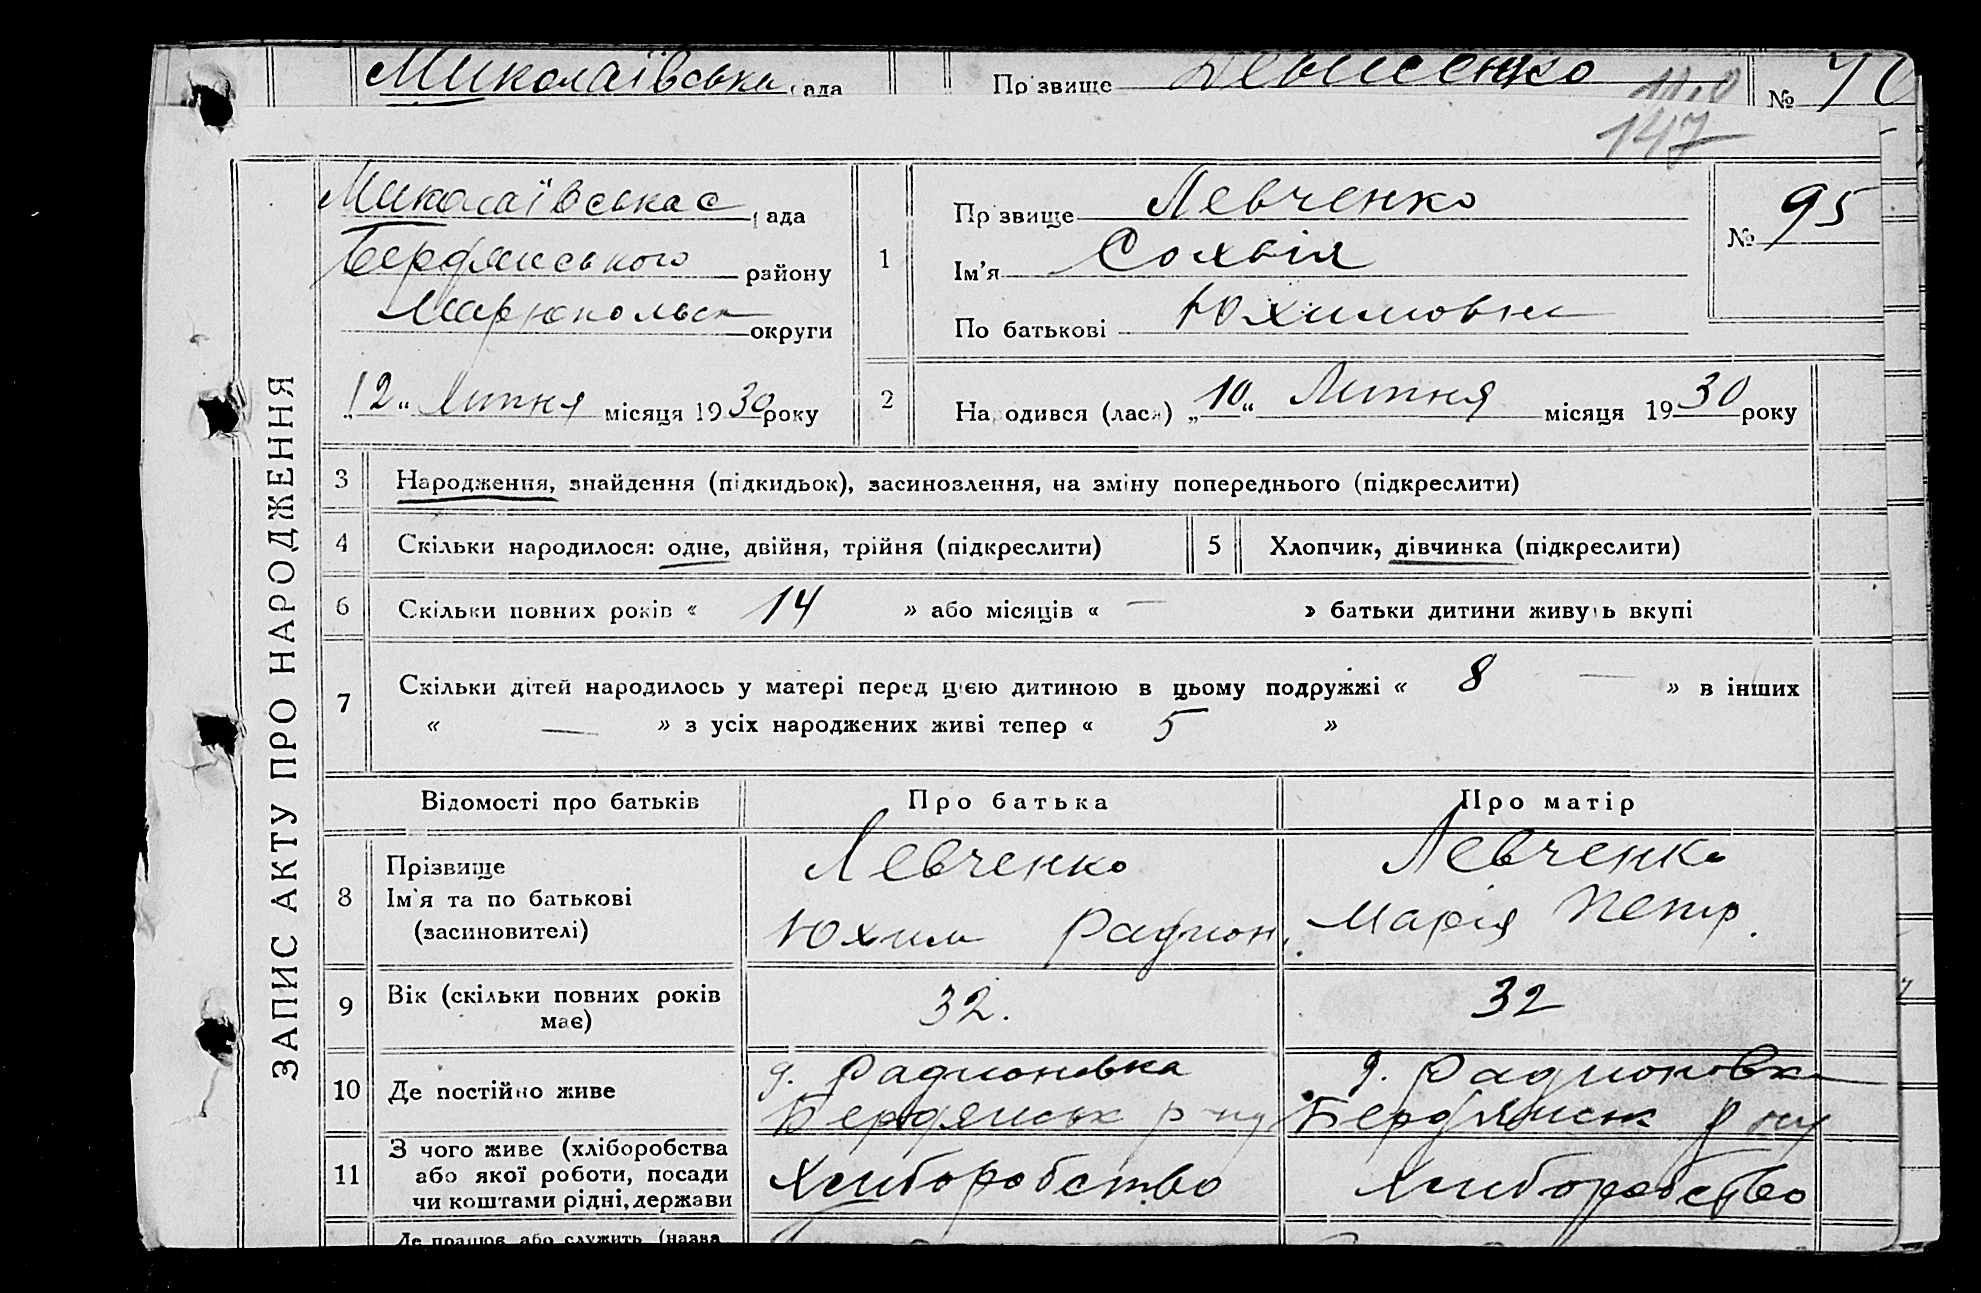 Миколаївська рада Прізвище № 70
147
Миколаївська с рада
Бердянського району
Марюпольск округи
„12“ Липня місяця 1930 року
1
Прізвище Левченко
Ім'я Сохвія
По батькові Юхимовна
№ 95
2 Народився (лася) „10“ Липня місяця 1930 року
ЗАПИС АКТУ ПРО НАРОДЖЕННЯ
3 Народження, знайдення (підкидьок), засиновлення, на зміну попереднього (підкреслити)
4 Скільки народилося: одне, двійня, трійня (підкреслити) 5 Хлопчик, дівчинка (підкреслити)
6 Скільки повних років « 14 » або місяців « — » батьки дитини живуть вкупі
7 Скільки дітей народилось у матері перед цією дитиною в цьому подружжі « 8 — » в інших
« — » з усіх народжених живі тепер « 5 »
Відомості про батьків Про батька Про матір
8 Прізвище
Ім'я та по батькові
(засиновителі)
Левченко
Юхим Радион.
Левченко
Марія Петр.
9 Вік (скільки повних років
має)
32.
32
10 Де постійно живе
д. Радионовка
Бердянськ р-ну
д. Радионовка
Бердянськ р ну
11 З чого живе (хліборобства
або якої роботи, посади
чи коштами рідні, держави
Хлиборобство
Хлиборобство
Де працює або служить (назва